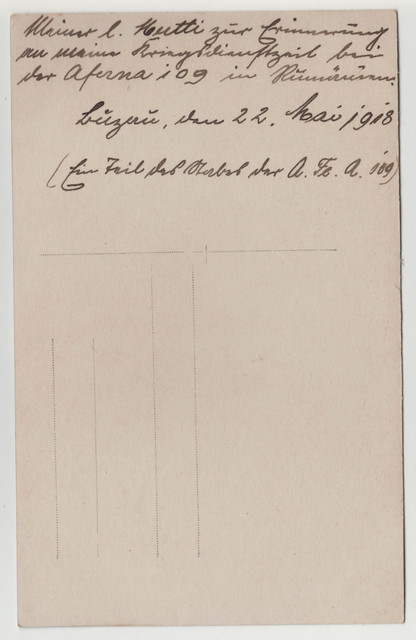 Meiner l. Mutti zur Erinnerung
an meine Kriegsdienstzeit bei
der Aferna 109 in Rumänien.
Buzau, den 22. Mai 1918
(Ein Teil des Stabes der A. Fe. A. 109)